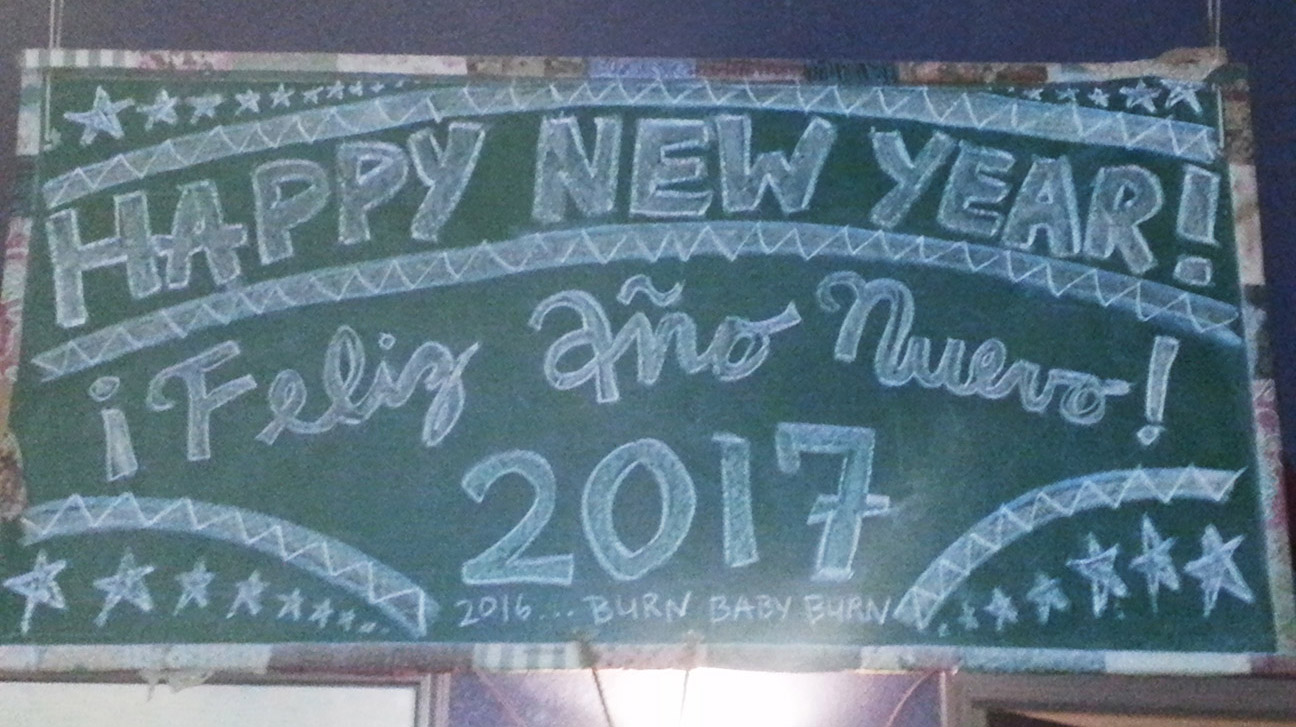 HAPPY NEW YEAR!
¡Feliz año Nuevo!
2017
2016... BURN BABY BURN